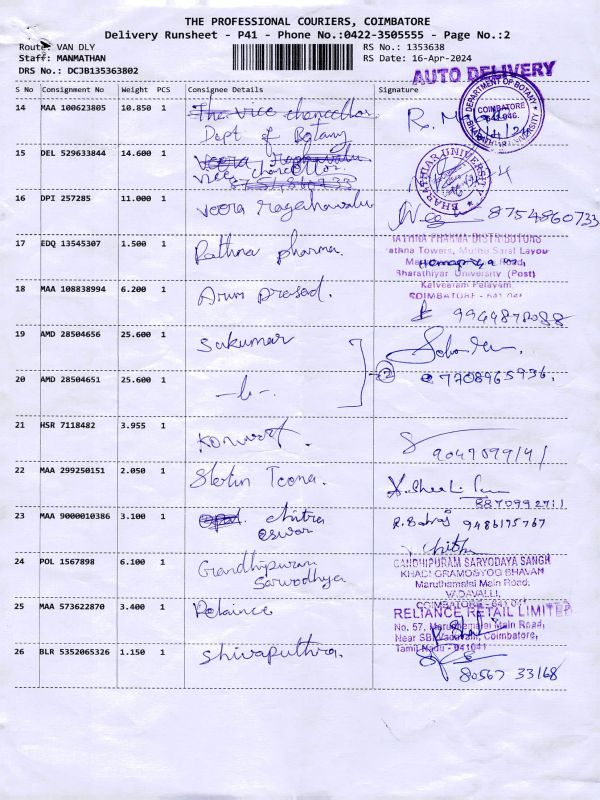 THE PROFESSIONAL COURIERS, COIMBATORE
Delivery Runsheet - P41 - Phone No.:0422-3505555 - Page No.:2
Route: VAN DLY
RS No.: 1353638
Staff: MANMATHAN
RS Date: 16-Apr-2024
DRS No.: DCJB135363802
AUTO DELIVERY
S No Consignment No Weight PCS Consignee Details Signature
14 MAA 100623805 10.850 1 The Vice chancellor
Dept of Botany
DEPARTMENT OF BOTANY
COIMBATORE
641 046.
15 DEL 529633844 14.600 1 Veera Ragahavalu
vice chancellor.
8754860733
BHARATHIAR UNIVERSITY
16 DPI 257285 11.000 1 veera ragahavalu 8754860733
17 EDQ 13545307 1.500 1 Rathna pharma.
RATHNA PHARMA DISTRIBUTORS
athna Towers, Muthu Saral Layou
Bharathiyar University (Post)
Kalveeram Palayam,
COIMBATORE - 641 046
18 MAA 108838994 6.200 1 Arun prasad. 9944872088
19 AMD 28504656 25.600 1 Sukumar
2
20 AMD 28504651 25.600 1 -"- 7708965936.
21 HSR 7118482 3.955 1 9047099141
22 MAA 299250151 2.050 1 8870992711
23 MAA 9000010386 3.100 1 chitra
eswar
9486175767
24 POL 1567898 6.100 1 Gandhipuram
Sarvodhya
GANDHIPURAM SARVODAYA SANGH
KHADI GRAMODYOG BHAVAN
Maruthamalai Main Road,
VADAVALLI,
COIMBATORE - 641 041
25 MAA 573622870 3.400 1 Relaince
RELIANCE RETAIL LIMITED
No. 57, Maruthamalai Main Road,
Near SBI Vadavalli, Coimbatore,
Tamil Nadu - 641041
26 BLR 5352065326 1.150 1 Shivaputhra.
80567 33168